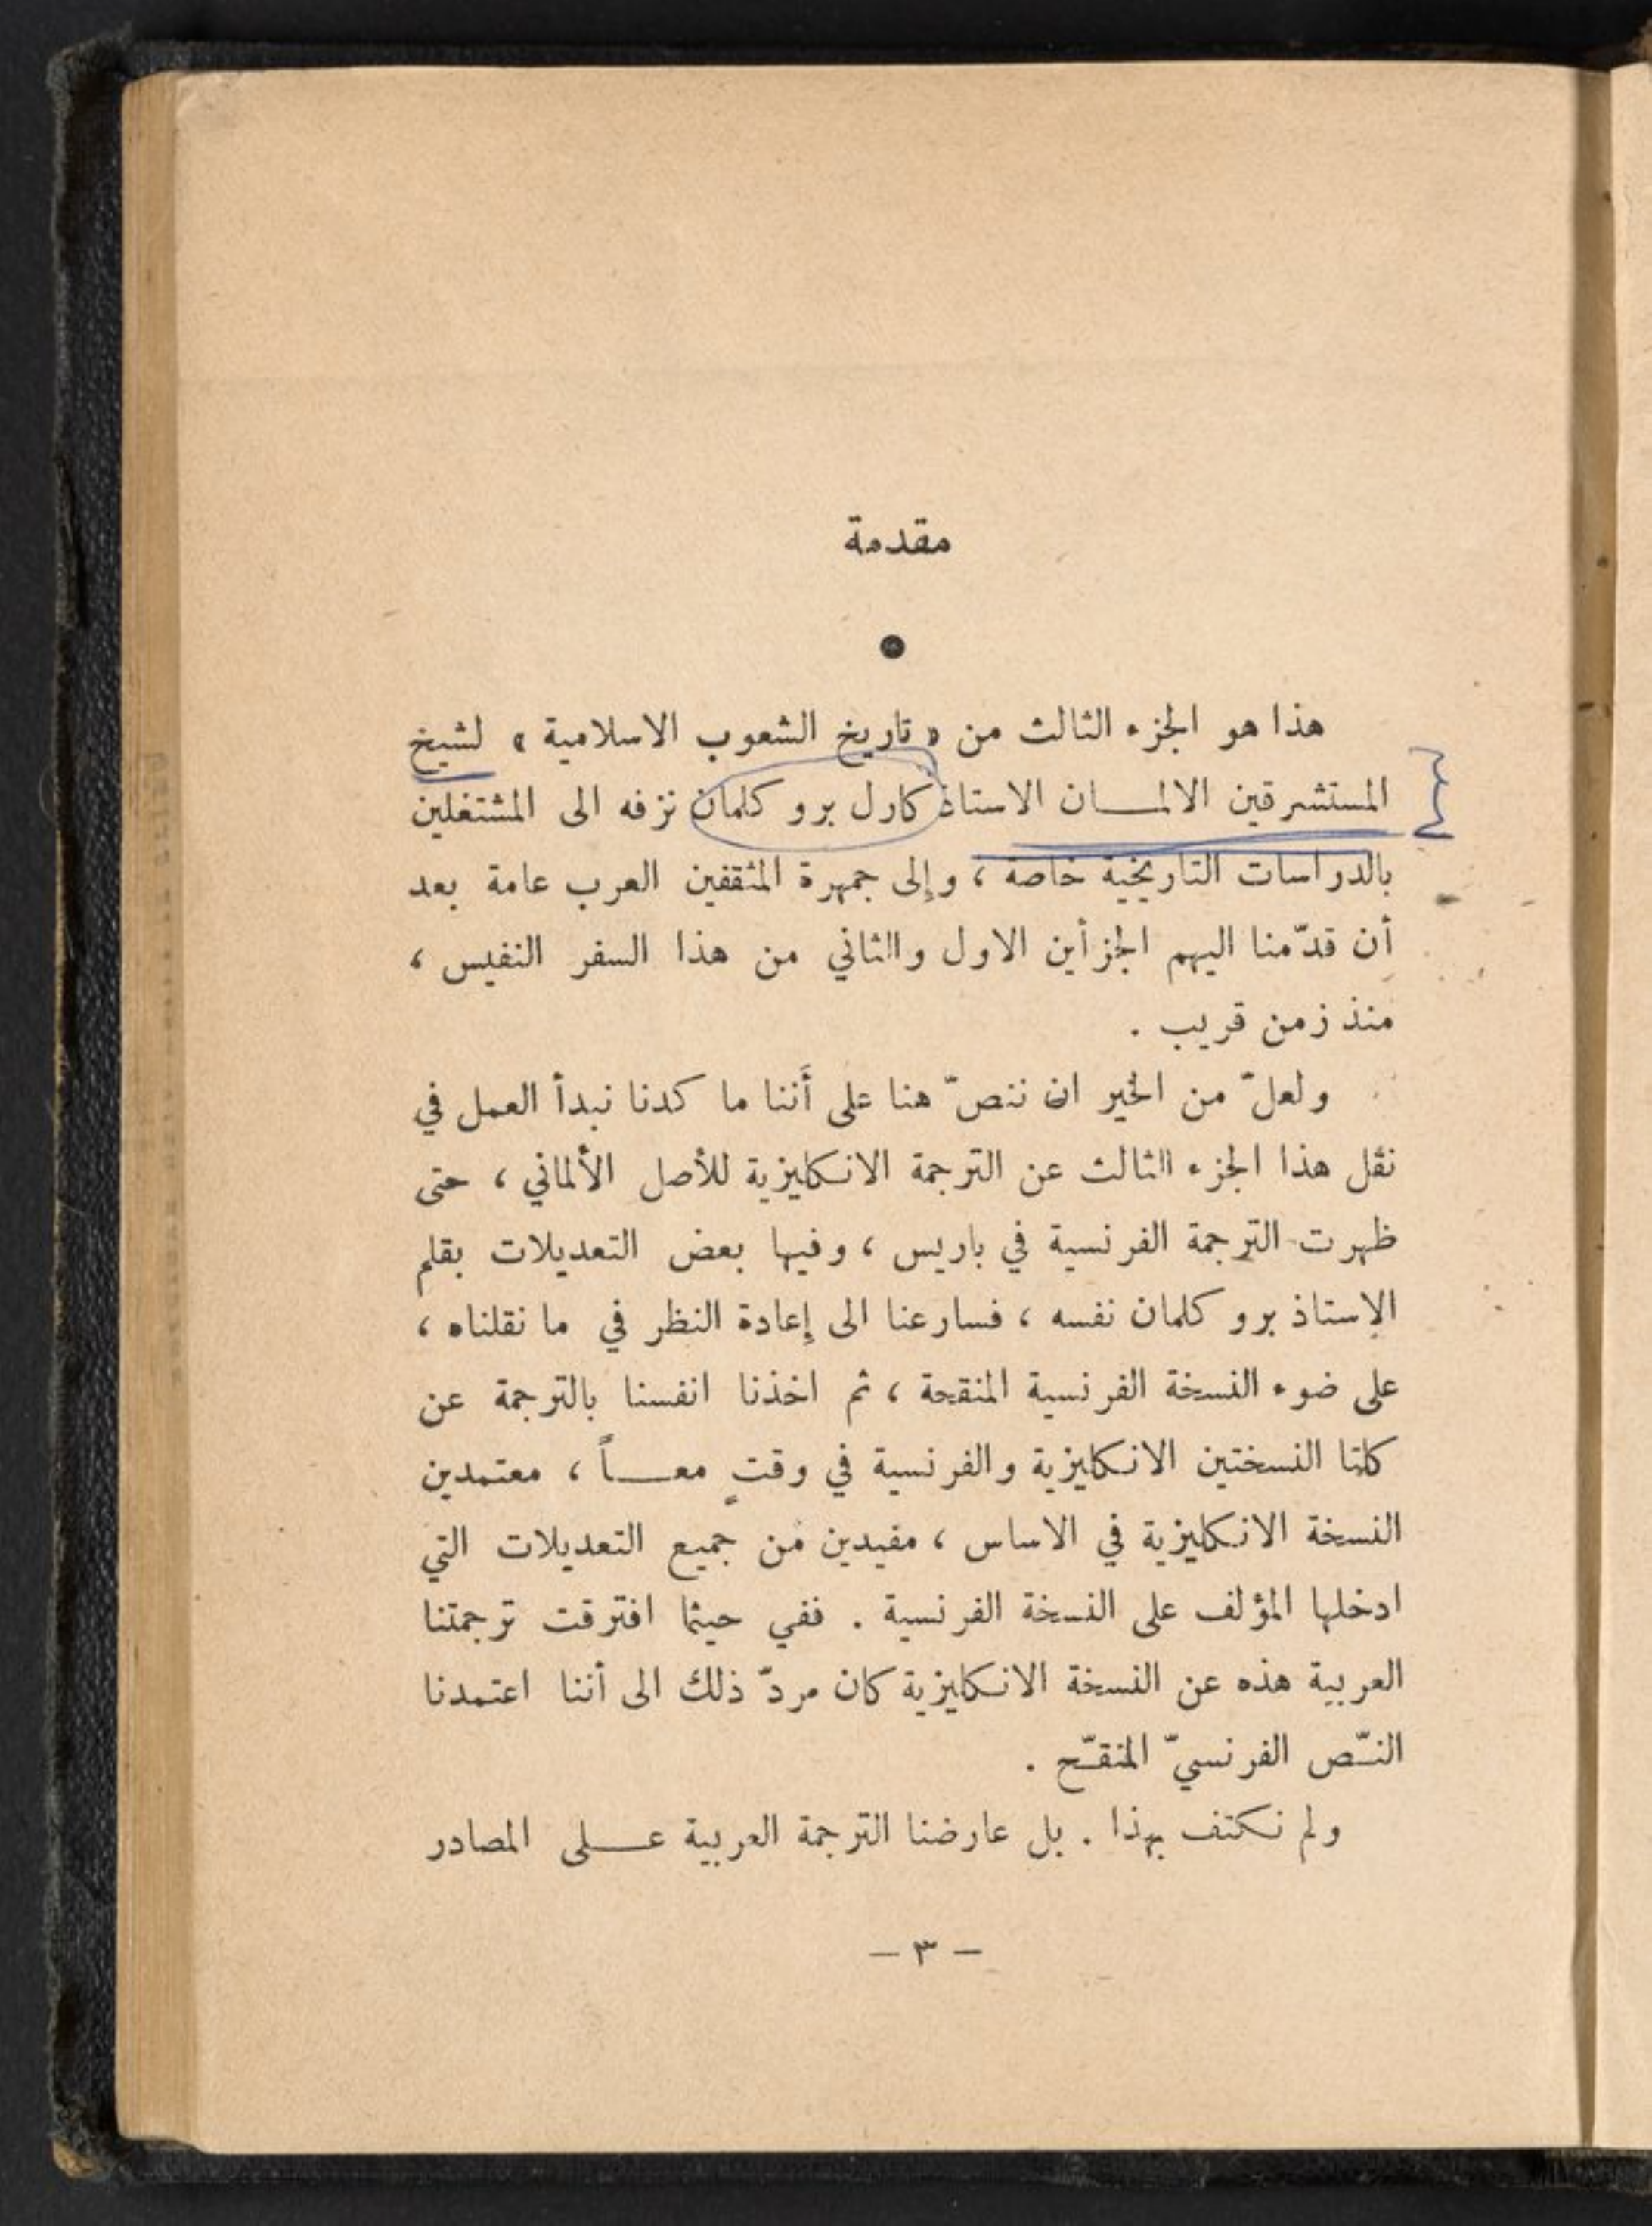 مقدمة
هذا هو الجزء الثالث من « تاريخ الشعوب الاسلامية » لشيخ
المستشرقين الالمـــان الاستاذ كارل بروكلمان نزفه الى المشتغلين
بالدراسات التاريخية خاصة ، وإلى جمهرة المثقفين العرب عامة بعد
أن قدّمنا اليهم الجزأين الاول والثاني من هذا السفر النفيس ،
منذ زمن قريب .
ولعلّ من الخير ان ننصّ هنا على أَننا ما كدنا نبدأ العمل في
نقل هذا الجزء الثالث عن الترجمة الانكليزية للأصل الألماني ، حتى
ظهرت الترجمة الفرنسية في باريس ، وفيها بعض التعديلات بقلم
الاستاذ بروكلمان نفسه ، فسارعنا الى إعادة النظر في ما نقلناه ،
على ضوء النسخة الفرنسية المنقحة ، ثم اخذنا انفسنا بالترجمة عن
كلتا النسختين الانكليزية والفرنسية في وقتٍ معـــاً ، معتمدين
النسخة الانكليزية في الاساس ، مفيدين من جميع التعديلات التي
ادخلها المؤلف على النسخة الفرنسية . ففي حيثما افترقت ترجمتنا
العربية هذه عن النسخة الانكليزية كان مردّ ذلك الى أننا اعتمدنا
النـّص الفرنسيّ المنقـّح .
ولم نكتف بهذا . بل عارضنا الترجمة العربية عـــلى المصادر
— ٣ —